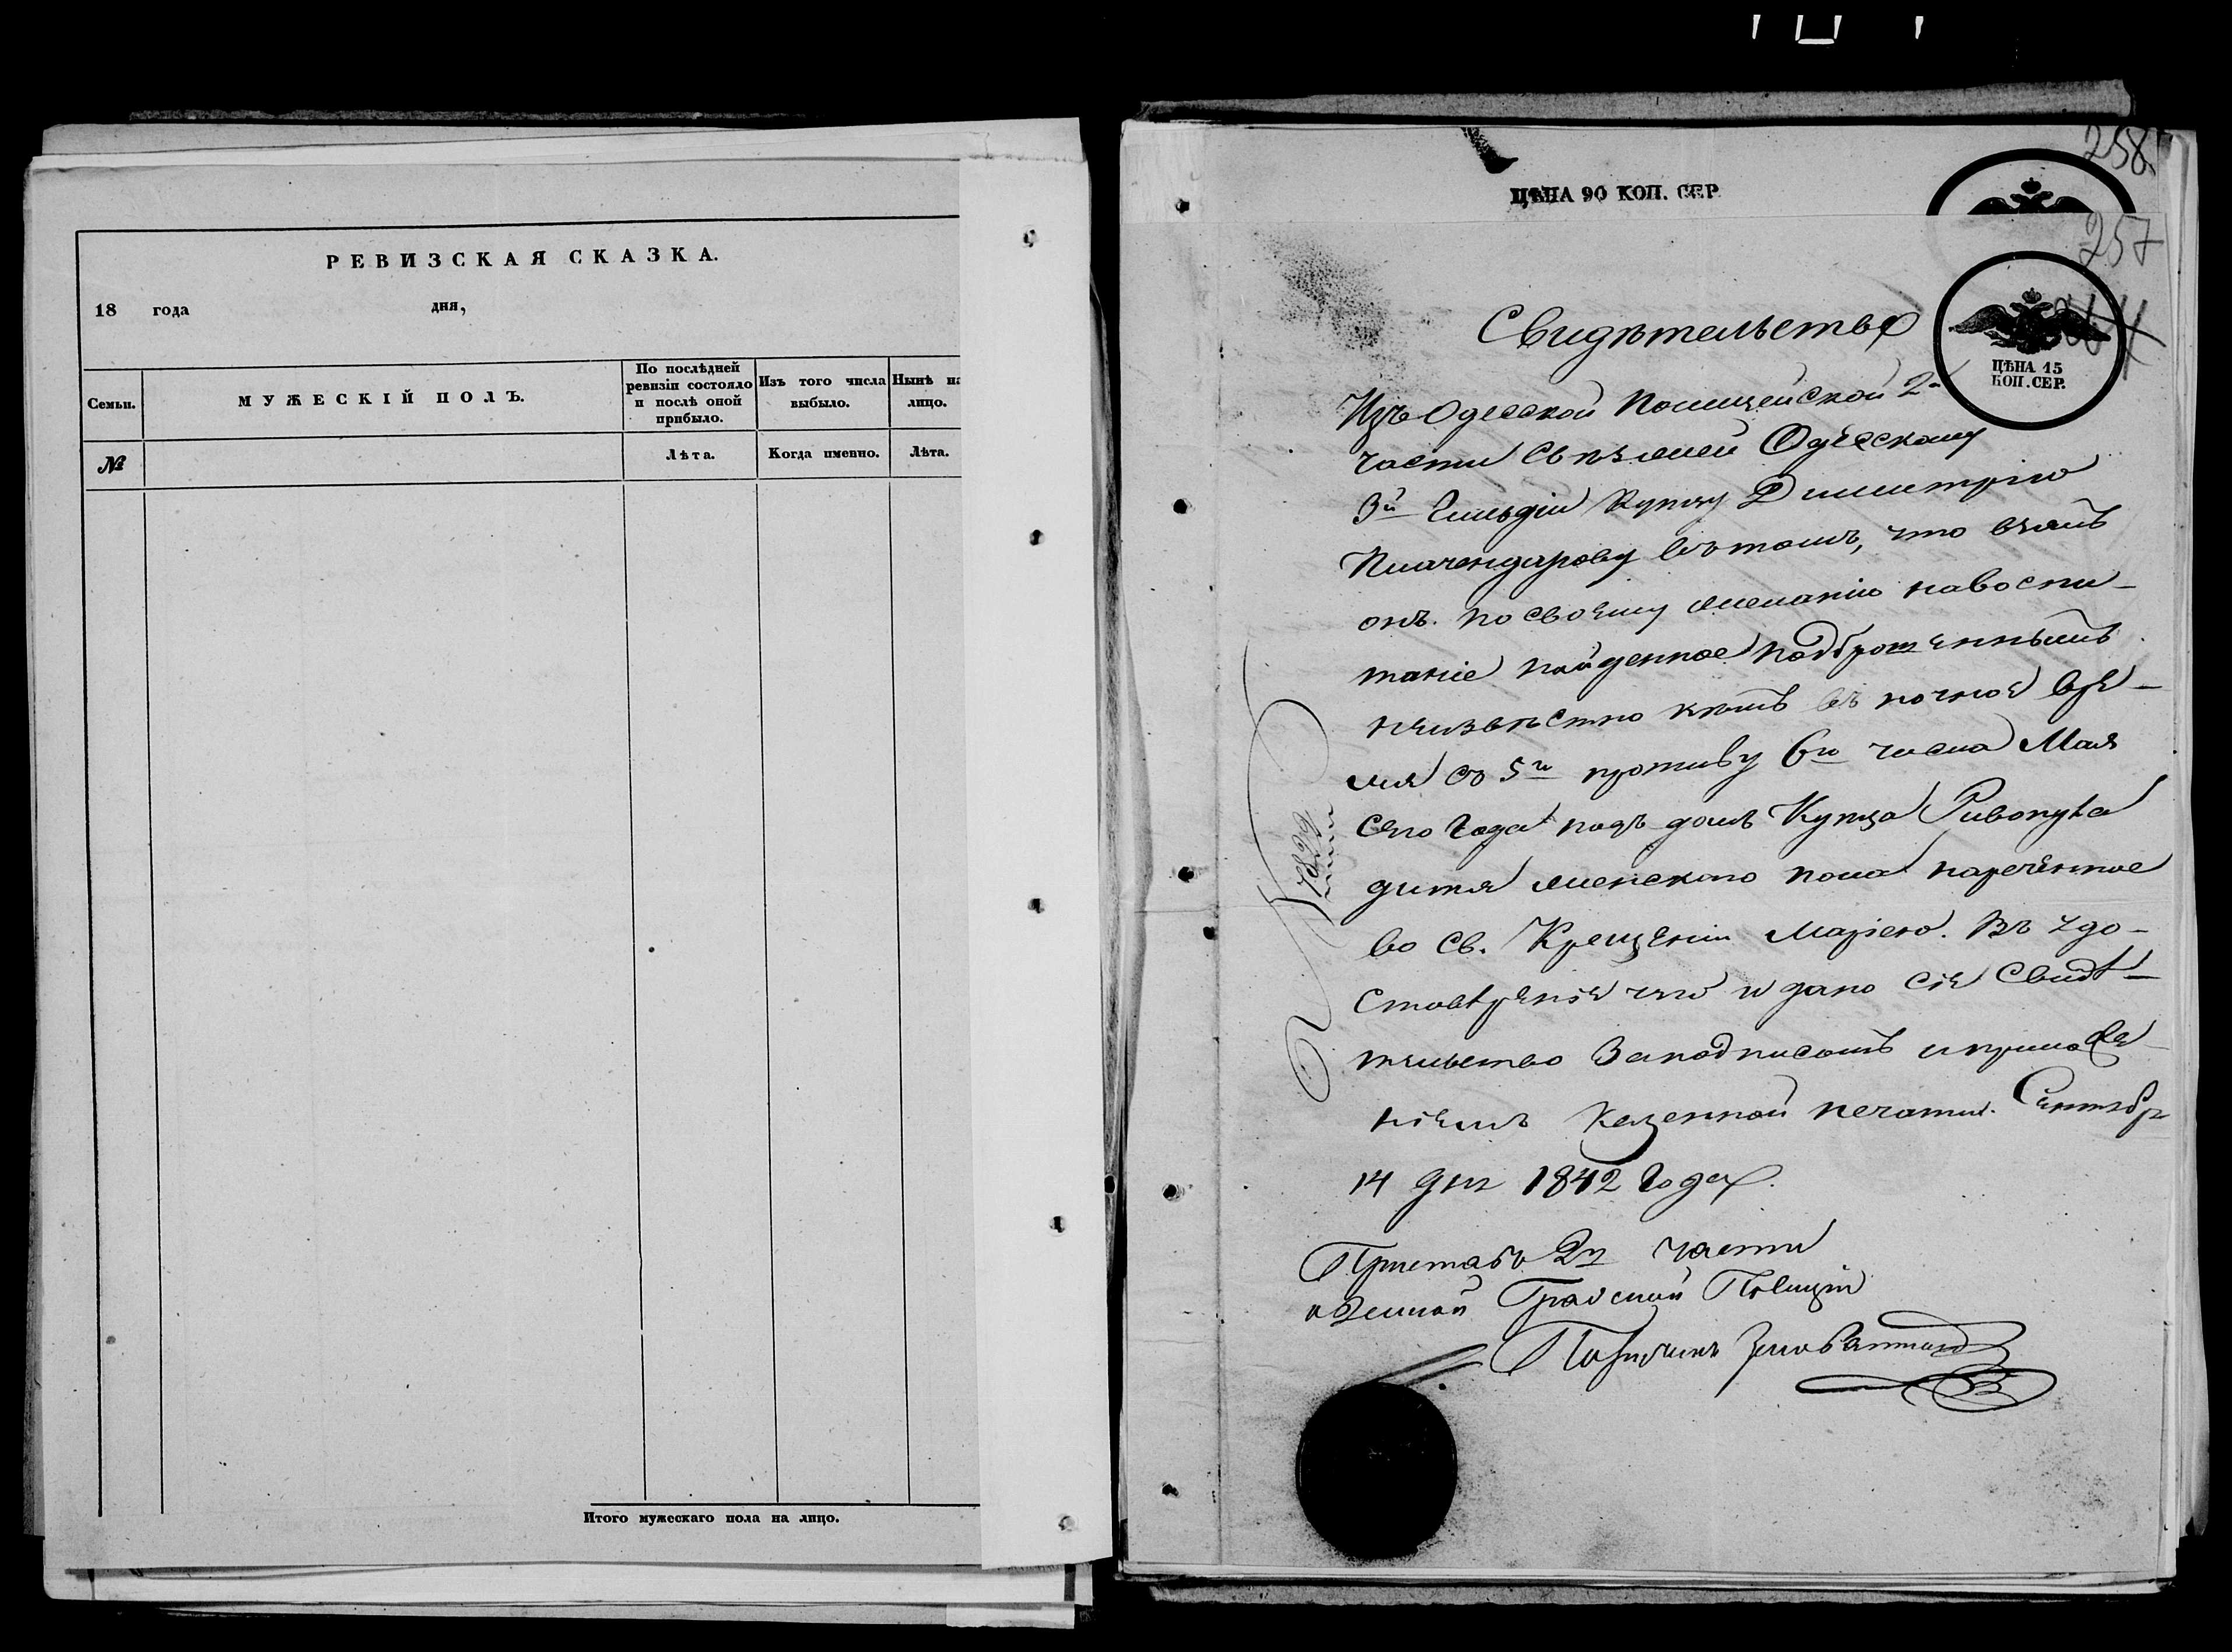 РЕВИЗСКАЯ СКАЗКА.
18 года дня,
Семьи.
МУЖЕСКІЙ ПОЛЪ.
По послѣдней
ревизіи состояло
и послѣ оной
прибыло.
Изъ того числа
выбыло.
Нынѣ на
лицо.
№
Лѣта.
Когда именно.
Лѣта.
Итого мужескаго пола на лицо.
258
ЦѢНА 90 КОП. СЕР
257
ЦѢНА 15
КОП. СЕР.
Свидѣтельство
Изъ Одесской Полицейской 2й
части Одесскому
3й Гильдіи Купцу Димитрію
въ томъ, что взялъ
онъ по своему желанію на воспи-
таніе найденное подброшеннымъ
неизвѣстно кѣмъ въ ночное вре-
мя съ 5го противу 6го числа Мая
сего года подъ домъ Купца
дитя женскаго пола нареченное
во Св. Крещеніи Маріею. Въ удо-
стовѣреніе чего и дано сіе Свидѣ-
тельство за подписомъ и приложе
ніемъ Казенной печати. Сентябр
14 дня 1842 Года.
Приставъ 2й части
Градской Полиціи